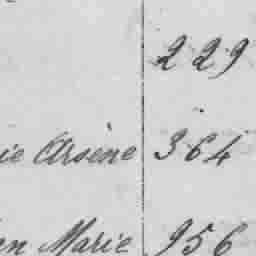 229
ie Arsène 364
en Marie 956